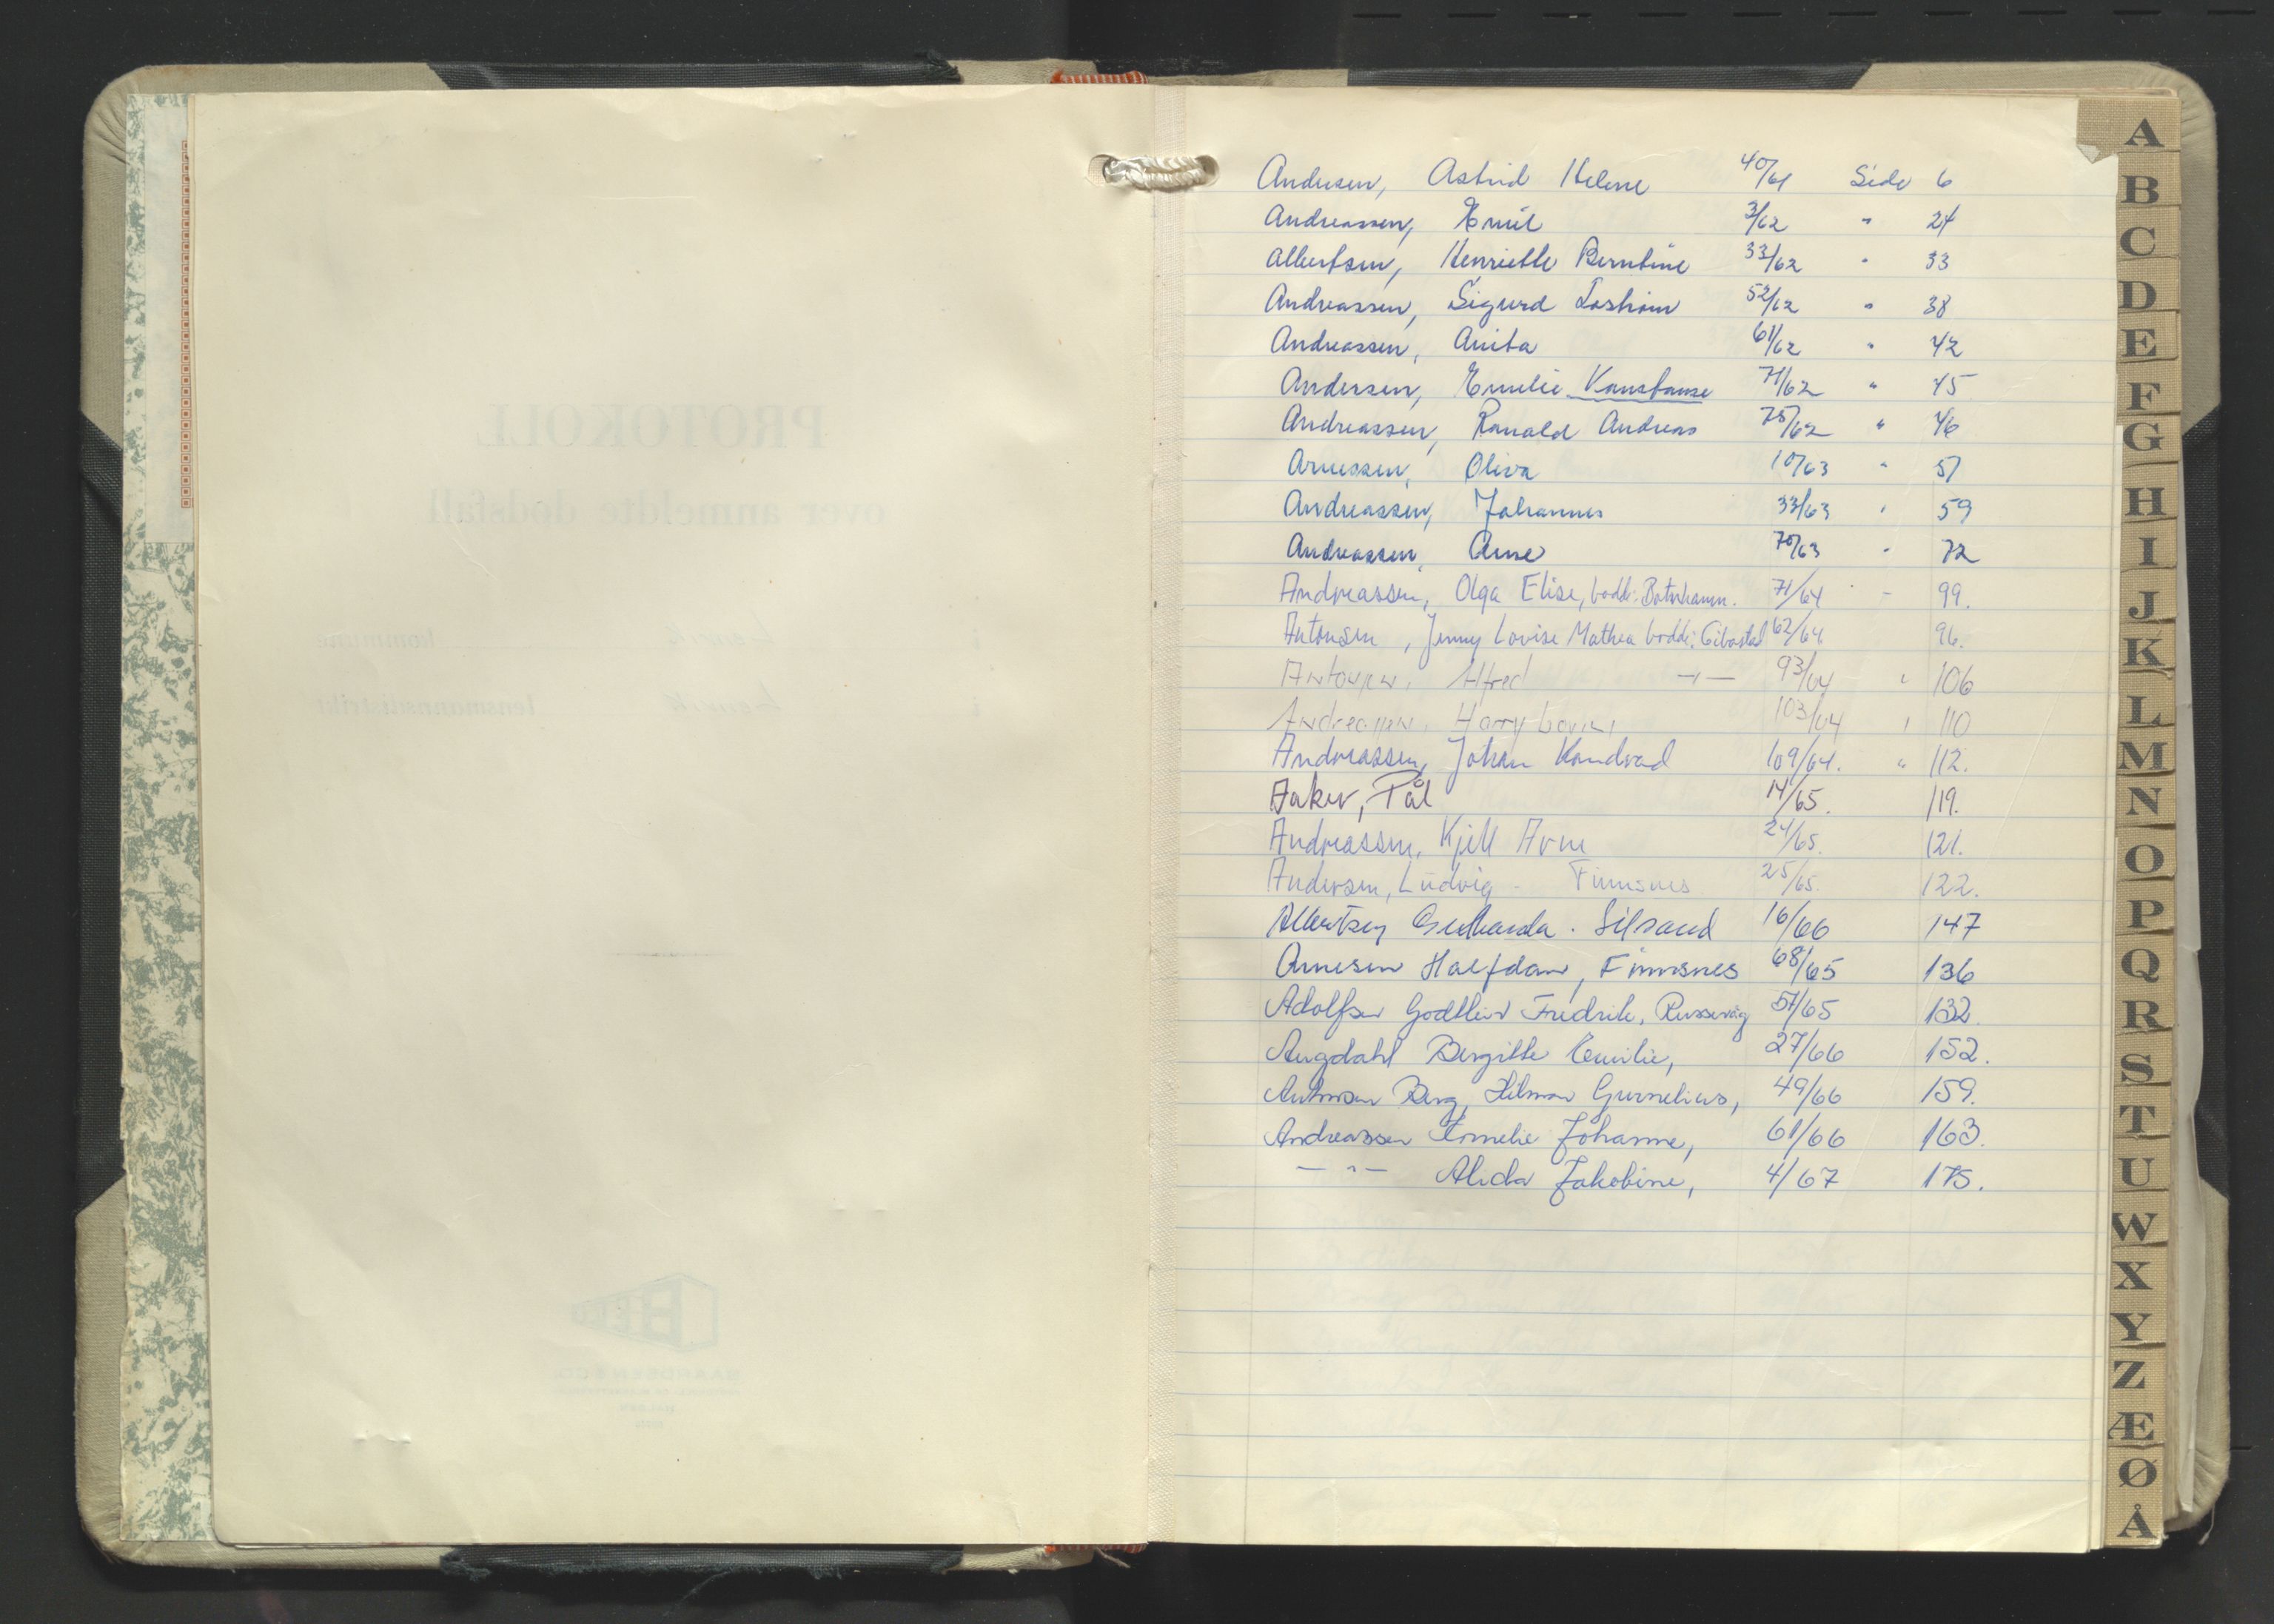 PROTOKOLL
over anmeldte dødsfall
i Lenvik kommune
i Lenvik lensmannsdistrikt
Andersen, Astrid Helene 40/61 Side 6
Andreassen, Emil 3/62 " 24
Albertsen, Henriette Berntine 33/62 " 33
Andreassen, Sigurd 52/62 " 38
Andreassen, Anita 61/62 " 42
Andersen, Emelie Konstanse 71/62 " 45
Andreassen, Ronald Andreas 75/62 " 46
Arnessen, Oliva 10/63 " 57
Andreassen, Johannes 33/63 " 59
Andreassen, Arne 70/63 " 72
Andreassen, Olga Elise, bodd: Botnhamn. 71/64 - 99.
Antonsen, Jenny Lovise Mathea bodd: Gibostad 62/64 96.
Antonsen, Alfred —"— 93/64 " 106
Andreassen, Harry 103/64 " 110
Andreassen, Johan Kondrad 109/64. " 112.
Aaker, Pål 14/65. 119.
Andreassen, Kjell Arne 24/65. 121.
Andersen, Ludvig - Finnsnes 25/65. 122.
Albertsen Gerharda. Silsand 16/66 147
Arnesen Halfdan, Finnsnes 68/65 136
Adolfsen Godtliev Fredrik, Russevåg 57/65 132.
Augdahl Bergitte Emilie, 27/66 152.
Antonsen Berg, Hilmar 49/66 159.
Andreassen Kornelie Johanne, 61/66 163.
— " — Alida Jakobine, 4/67 175.
A
B
C
D
E
F
G
H
I
J
K
L
M
N
O
P
Q
R
S
T
U
W
X
Y
Z
Æ
Ø
Å